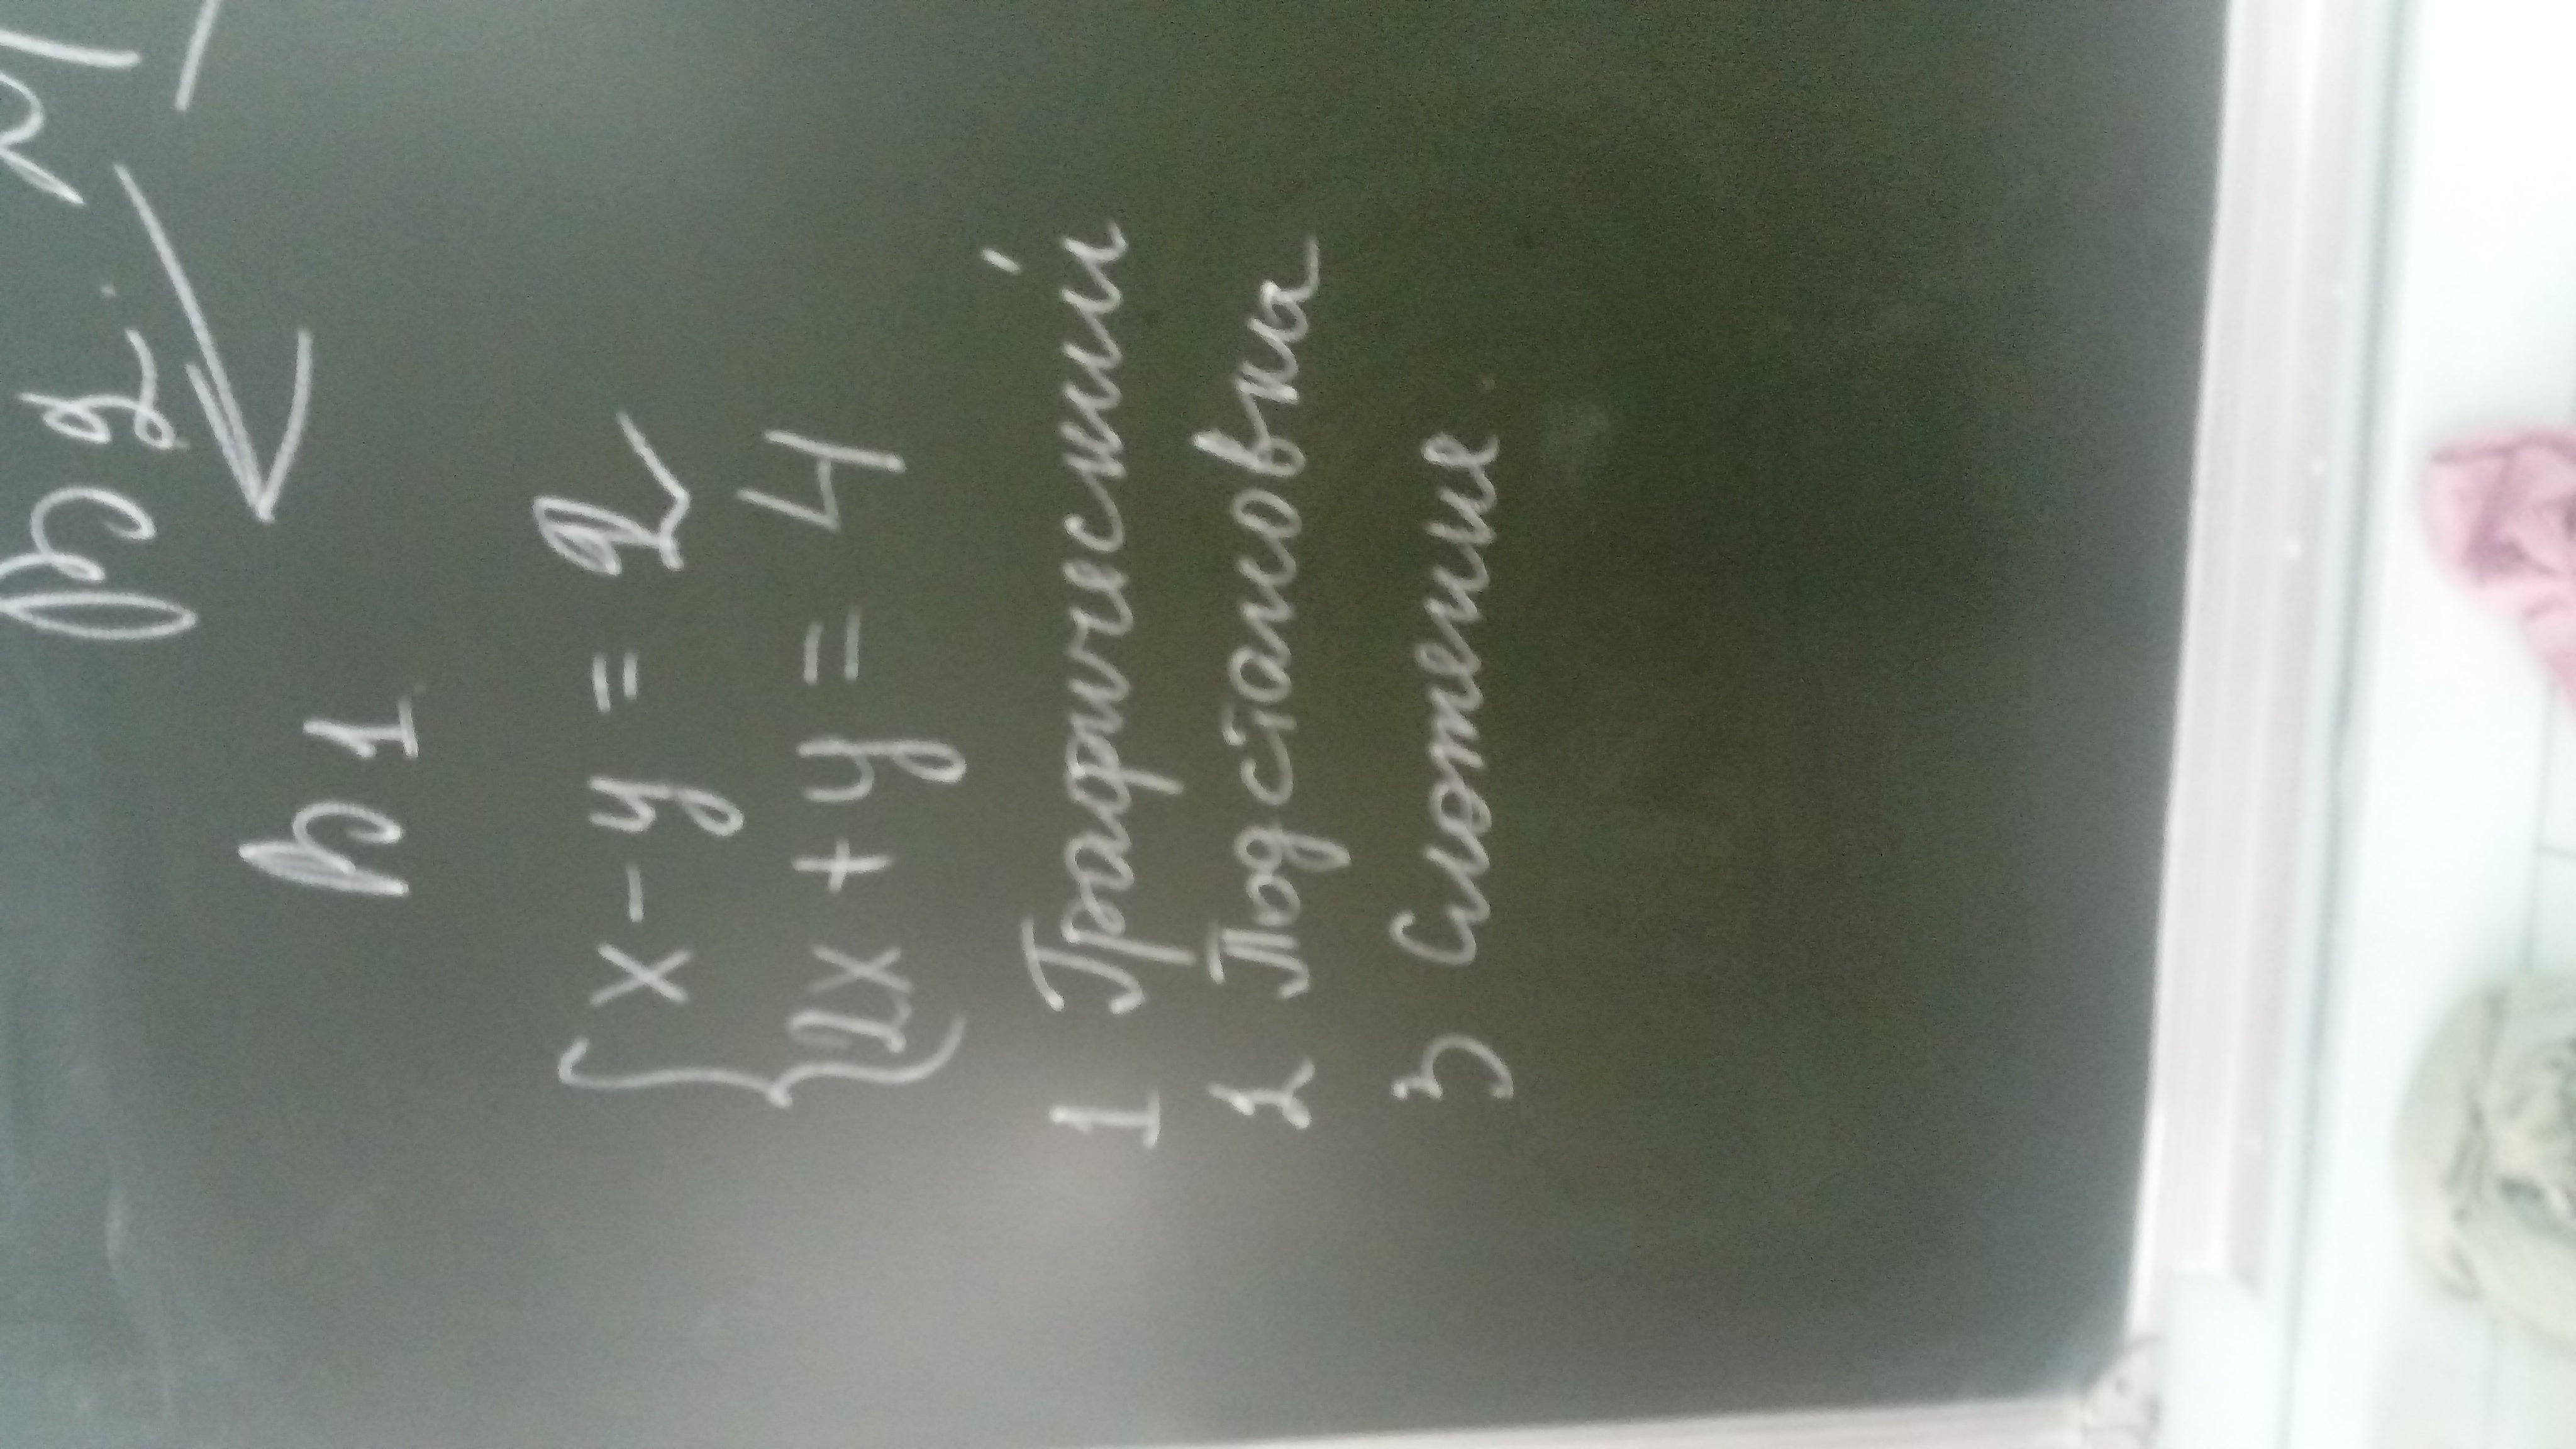 р1
{ x - y = 2
2x + y = 4
1 Графический
2 Подстановка
3 Сложение.